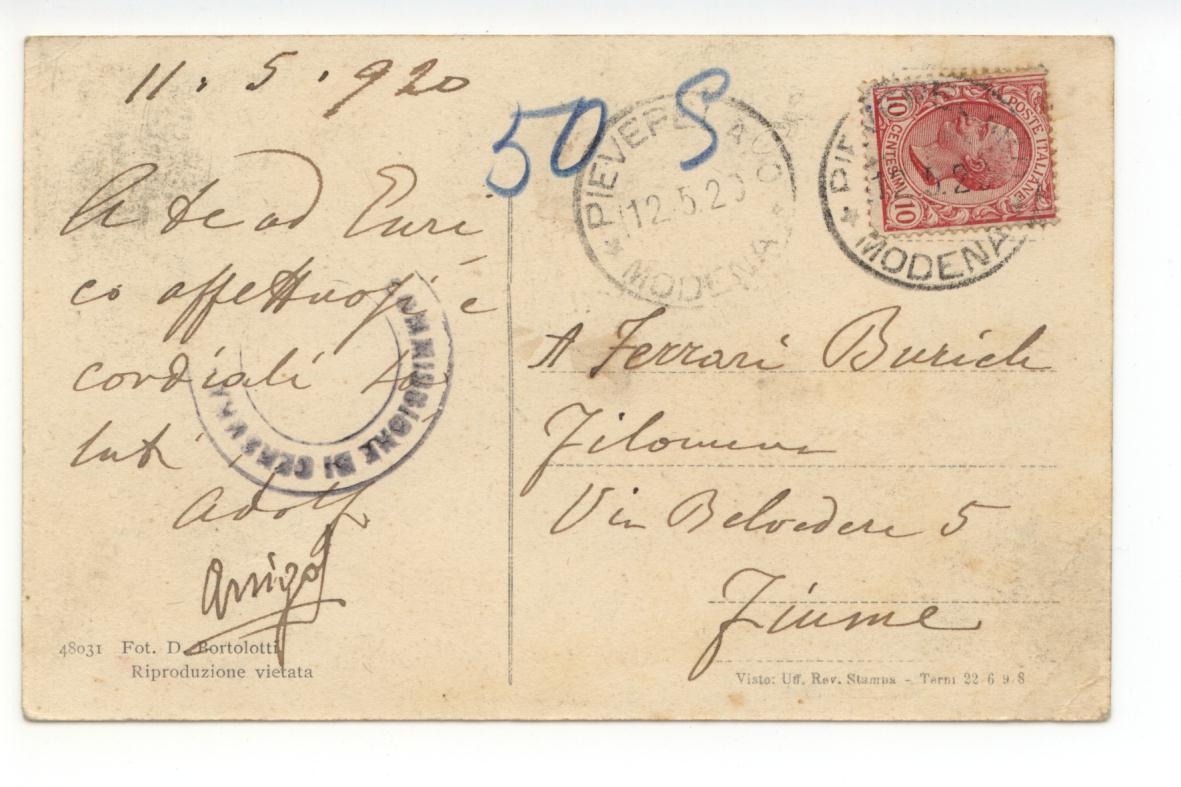 11. 5. 920
A te ad Enri
co affettuosi e
cordiali sa
luti
Adolf
Arrigo
48031 Fot. D. Bortolotti
Riproduzione vietata
50 S
PIEVEPELAGO
12.5.20
* MODENA *
POSTE ITALIANE
10 CENTESIMI 10
* MODENA
COMMISSIONE DI CENSURA
A Ferrari Burich
Filomena
Via Belvedere 5
Fiume
Visto: Uff. Rev. Stampa - Terni 22 6 9 8